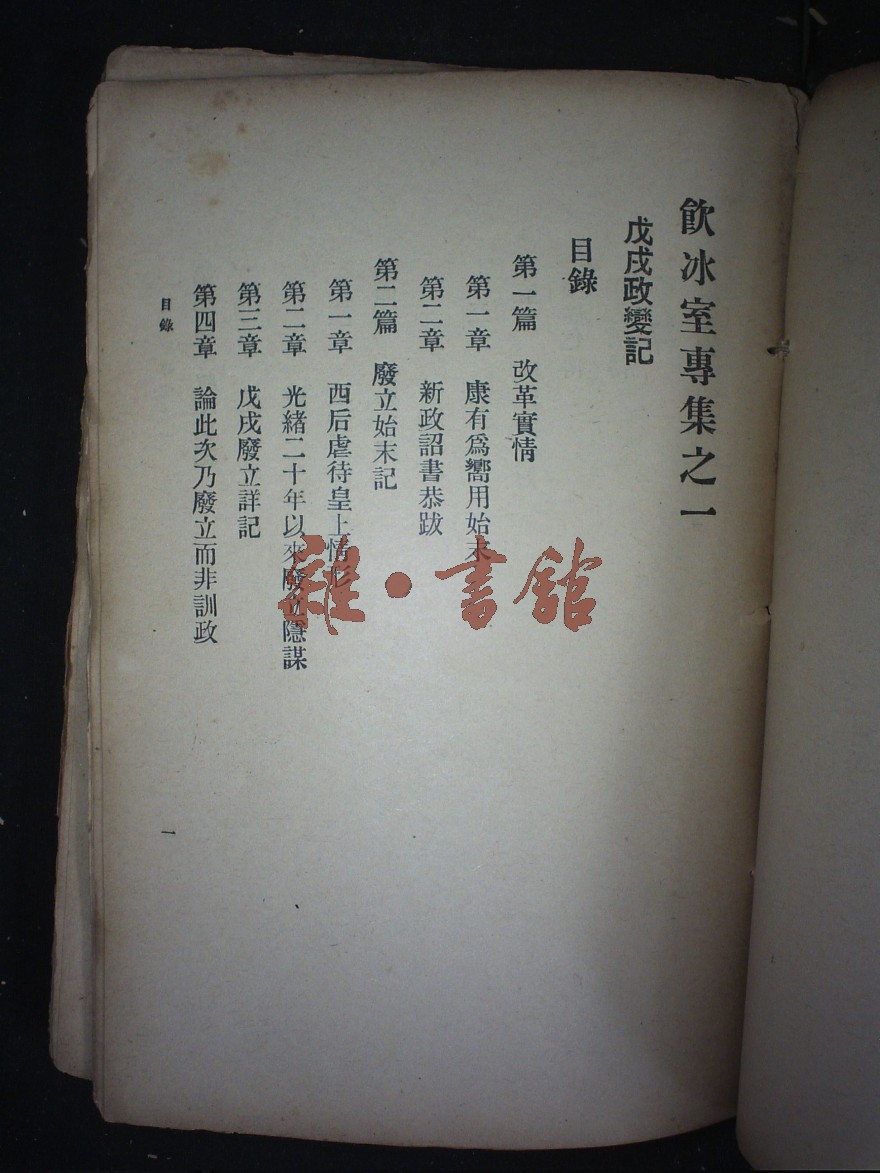 飮冰室專集之一
戊戌政變記
目錄
第一篇　改革實情
第一章　康有爲嚮用始末
第二章　新政詔書恭跋
第二篇　廢立始末記
第一章　西后虐待皇上情形
第二章　光緒二十年以來廢立隱謀
第三章　戊戌廢立詳記
第四章　論此次乃廢立而非訓政
目錄
一
雜·書館